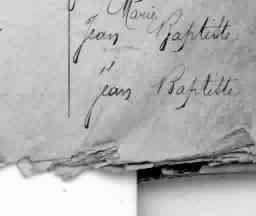 Marie
jean Baptiste
jean Baptiste